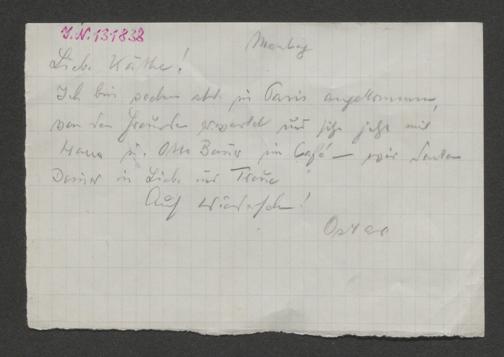 I.N. 191.838
Montag
Liebe Käthe!
Ich bin soeben in Paris angekommen,
von den Freunden erwartet und sitze jetzt mit
u. Otto Bauer im Café – wir denken
Deiner in Liebe und Treue
Auf Wiedersehen!
Oskar